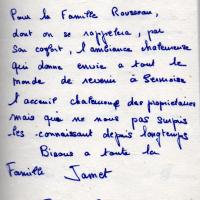 Pour la Famille Rousseau,
dont on se rappelera, par
son confort, l'ambiance chaleureuse
qui donne envie a tout le
monde de revenir à Sermoise
l'acceuil chaleureux des proprietaires
mais que ne nous pas surpris
les connaissant depuis longtemps
Bisous a toute la
Famille Jamet